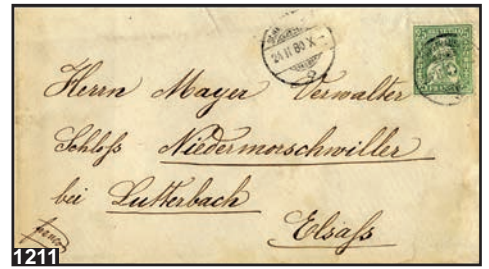 24 II 80 X
25 25
FRANCO
Herrn Mayer Verwalter
Schloß Niedermorschwiller
bei Lutterbach
Elsaß
franco
1211